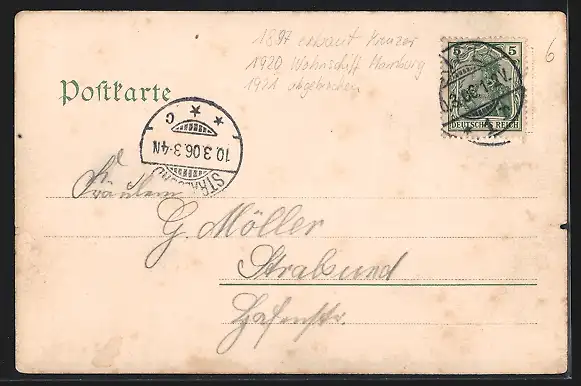 1897 erbaut Kreuzer
1920 Wohnschiff Hamburg
1921 abgebrochen
6
5 5
DEUTSCHES REICH
Postkarte
* * C
10.3.06.3-4N
STRALSUND
Fräulein
G. Möller
Stralsund
Hafenstr.